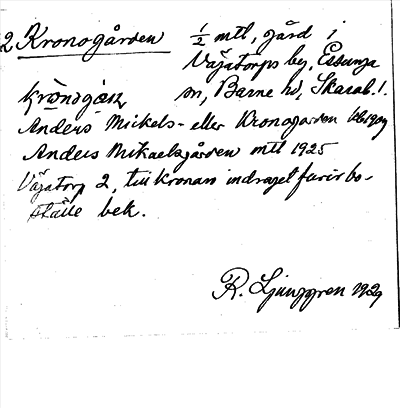 2 Kronogården ½ mtl, gård i
Vägatorps by, Essunga
sn, Barne hd, Skarab. l.
Anders Mickels- eller Kronogarden
Anders Mikaelsgården mtl 1925
Vägatorp 2, till kronan indraget furirbo-
ställe bek.
R. Ljunggren 1929